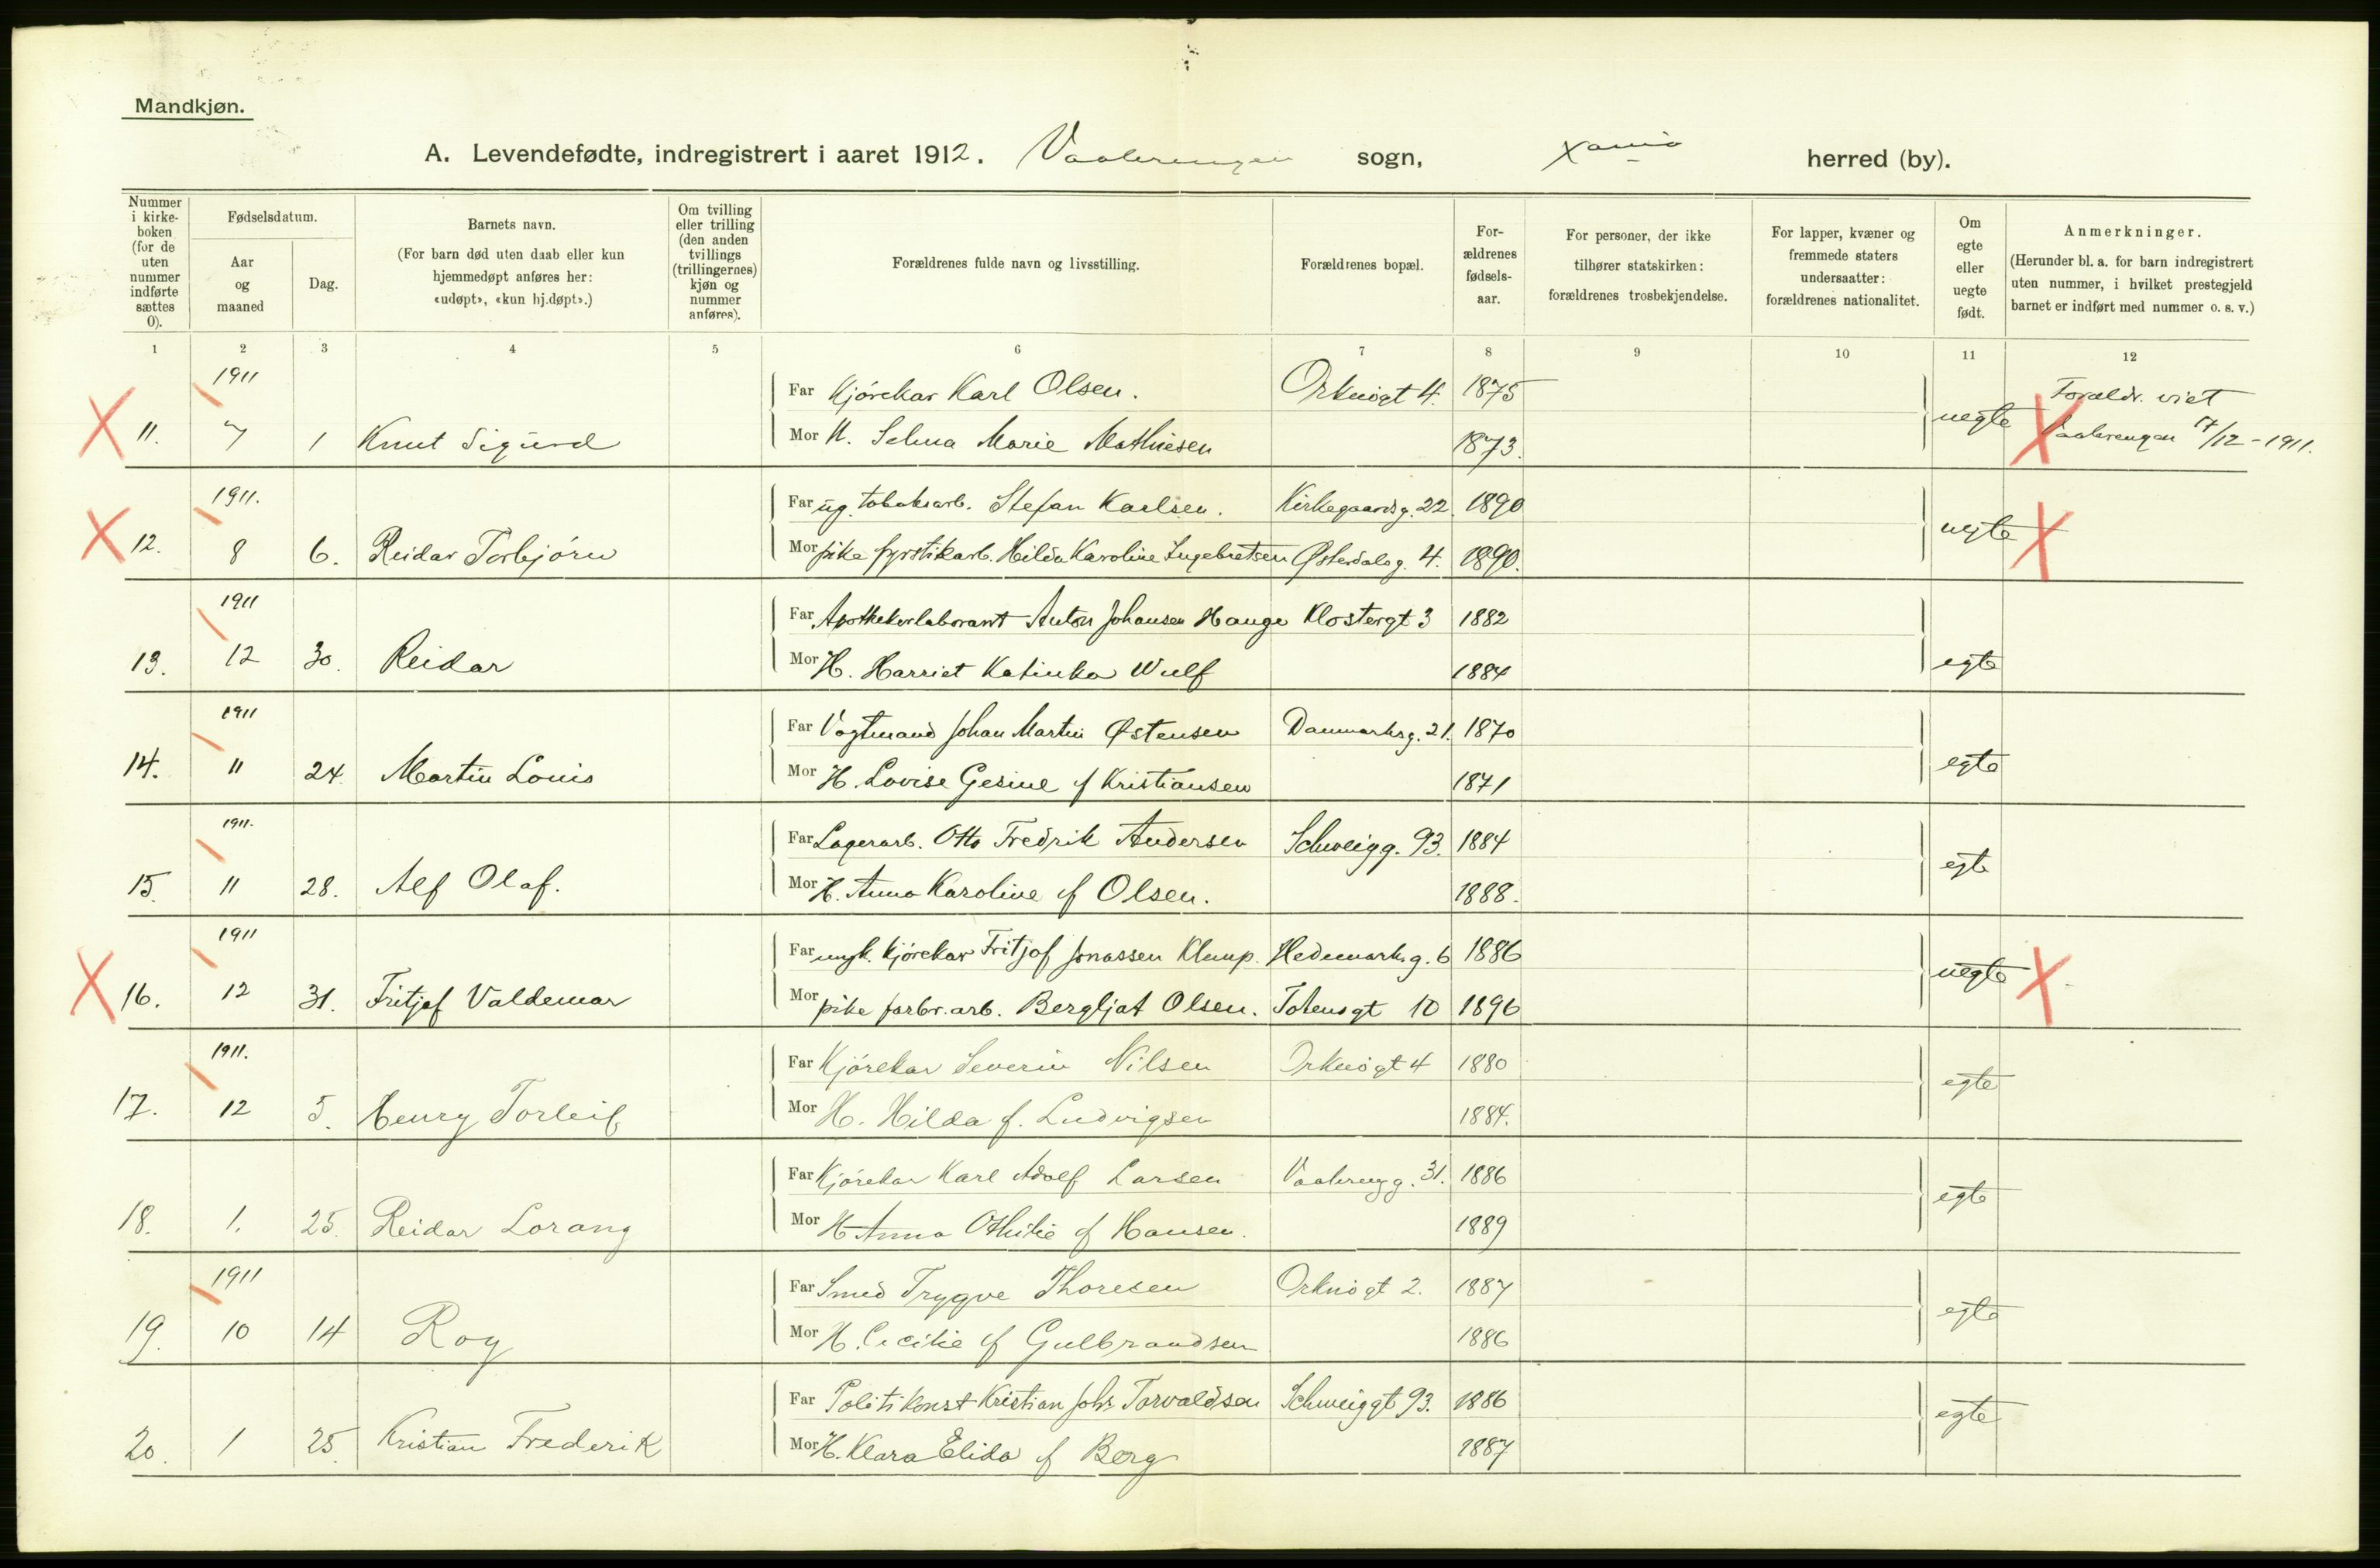 Mandkjøn.
A. Levendefødte, indregistrert i aaret 1912. Vaalerengen sogn, Xania herred (by).
Nummer i kirke-boken (for de uten nummer indførte sættes 0).
Fødselsdatum.
Aar og maaned
Dag.
Barnets navn.
(For barn død uten daab eller kun hjemmedøpt anføres her: «udøpt», «kun hj.døpt».)
Om tvilling eller trilling (den anden tvillings (trillingernes) kjøn og nummer anføres).
Forældrenes fulde navn og livsstilling.
Forældrenes bopæl.
For-ældrenes fødsels-aar.
For personer, der ikke tilhører statskirken: forældrenes trosbekjendelse.
For lapper, kvæner og fremmede staters undersaatter: forældrenes nationalitet.
Om egte eller uegte født.
Anmerkninger.
(Herunder bl. a. for barn indregistrert uten nummer, i hvilket prestegjeld barnet er indført med nummer o. s. v.)
1 2 3 4 5 6 7 8 9 10 11 12
1911 Far Kjørekar Karl Olsen. Orknøgt 4. 1875 Foreldr. viet
11. 7 1 Knut Sigurd Mor H. Selma Marie Mathiesen 1873. uegte Vaalerengen 17/12 - 1911.
1911. Far ug. tobaksarb. Stefan Karlsen. Kirkegaardsg. 22. 1890
12. 8 6. Reidar Torbjørn Mor pike fyrstikarb. Hilda Karoline Ingebretsen Østerdalsg. 4. 1890. uegte
1911 Far Apothekerlaborant Anton Johansen Hauge Klostergt 3 1882
13. 12 30. Reidar Mor H. Harriet Katinka Wulf 1884 egte
1911 Far Vogtmand Johan Martin Østensen Danmarksg. 21. 1870
14. 11 24 Martin Louis Mor H. Lovise Gesine f Kristiansen 1871 egte
1911. Far Lagerarb. Otto Fredrik Andersen Schweigg. 93. 1884
15. 11 28. Alf Olaf. Mor H. Anna Karoline f Olsen. 1888. egte
1911 Far ungk. Kjørekar Fritjof Jonassen Klemp. Hedemarksg. 6 1886
16. 12 31. Fritjof Valdemar Mor pike fabr. arb. Bergljot Olsen. Totensgt 10 1896 uegte
1911. Far Kjørekar Severin Nilsen Orknøgt 4 1880
17. 12 5. Henry Torleif Mor H. Hilda f. Ludvigsen 1884. egte
Far Kjørekar Karl Adolf Larsen Vaalerengg. 31. 1886
18. 1. 25. Reidar Lorang Mor H Anna Othilie f Hansen. 1889 egte
1911 Far Smed Trygve Thoresen Orknøgt 2. 1887
19. 10 14 Roy Mor H. Cecilie f Gulbrandsen 1886 egte
Far Politikonst Kristian Johs Torvaldsen Schweiggt 93. 1886
20. 1 25. Kristian Frederik Mor H. Klara Elida f Berg 1887 egte